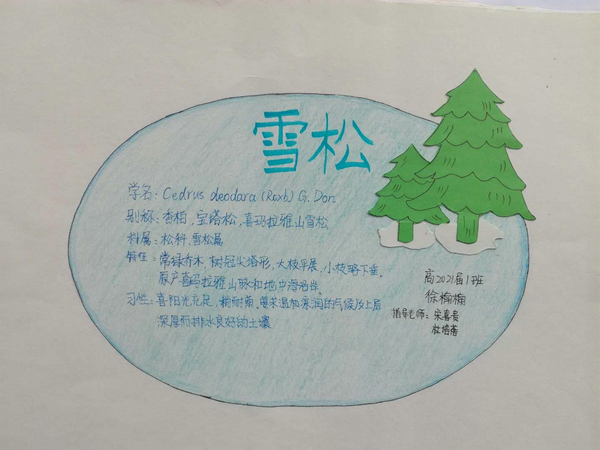 雪松
学名：Cedrus deodara (Roxb) G. Don
别称：香柏，宝塔松，喜玛拉雅山雪松
科属：松科，雪松属
特征：常绿乔木，树冠尖塔形，大枝平展，小枝略下垂。
原产喜玛拉雅山脉和地中海沿岸。
习性：喜阳光充足，稍耐荫，要求温和凉润的气候及上层
深厚而排水良好的土壤
高2021届1班
徐楠楠
指导老师：宋喜贵